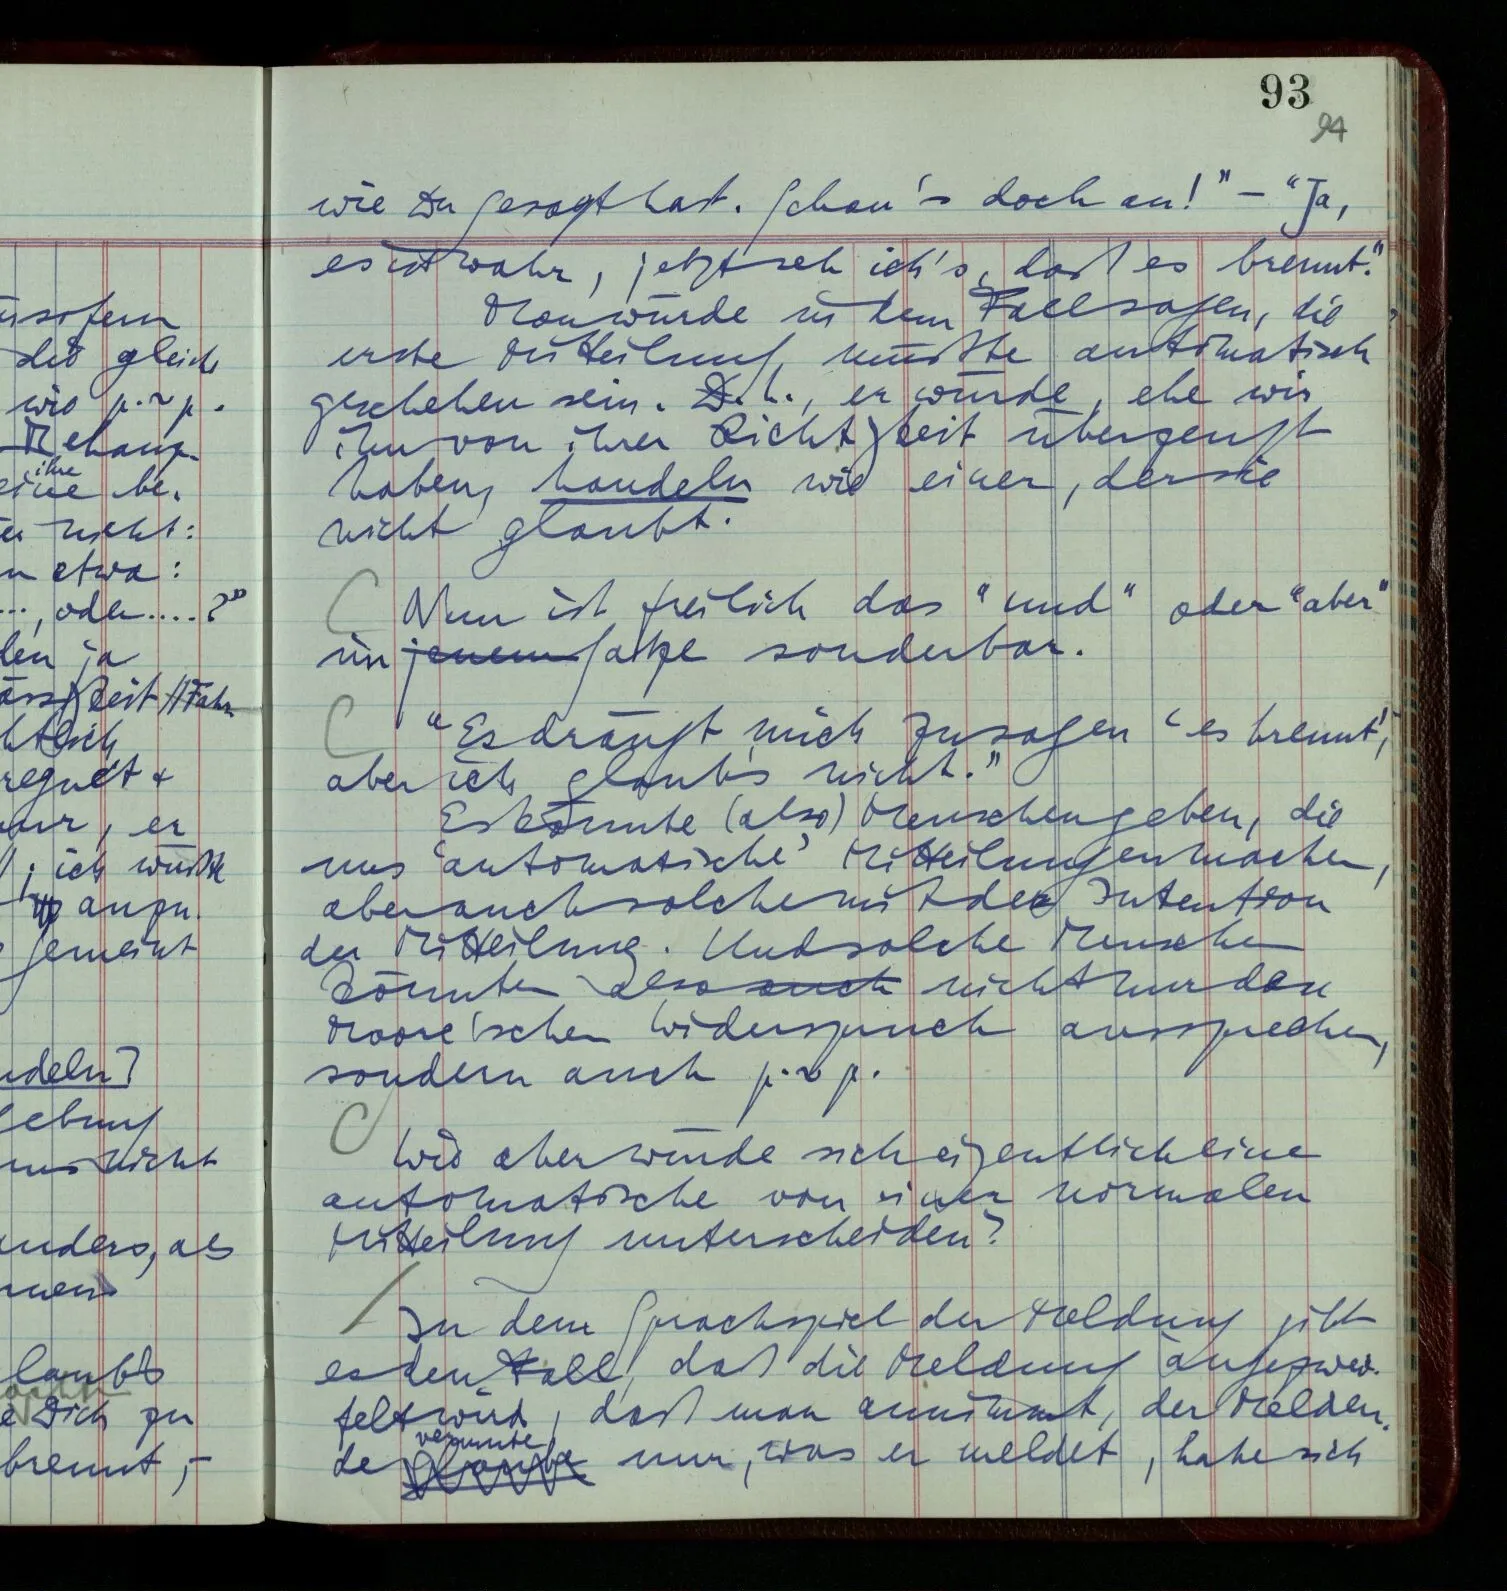 93
94
wie Du gesagt hast. Schau's doch an!" – "Ja,
es ist wahr, jetzt seh ich's, daß es brennt."
Man würde in dem Fall sagen, die
erste Mitteilung müßte automatisch
geschehen sein. D.h., er würde, ehe wir
ihn von ihrer Richtigkeit überzeugt
haben, handeln wie einer, der sie
nicht glaubt.
Nun ist freilich das "und" oder "aber"
im jenem Satze sonderbar.
"Es drängt mich zu sagen 'es brennt',
aber ich glaub's nicht."
Es könnte (also) Menschen geben, die
uns 'automatische' Mitteilungen machen,
aber auch solche mit der Intention
der Mitteilung. Und solche Menschen
könnten also auch nicht nur den
Moore'schen Widerspruch aussprechen,
sondern auch p.~p.
Wie aber würde sich eigentlich eine
automatische von einer normalen
Mitteilung unterscheiden?
In dem Sprachspiel der Meldung gibt
es den Fall, daß die Meldung angezwei-
felt wird, daß man annimmt, der Melden-
vermute
de glaube nur, was er meldet, habe sich
insofern
die gleich
wie p.~p.
Behaup-
ihre
eine be-
nicht:
etwa:
..., oder....?"
ja
Fahr
regnet &
er
ich wüßte
anzu-
gemeint
ndeln]
gebung
uns nicht
anders, als
laubt
Dich zu
brennt,–